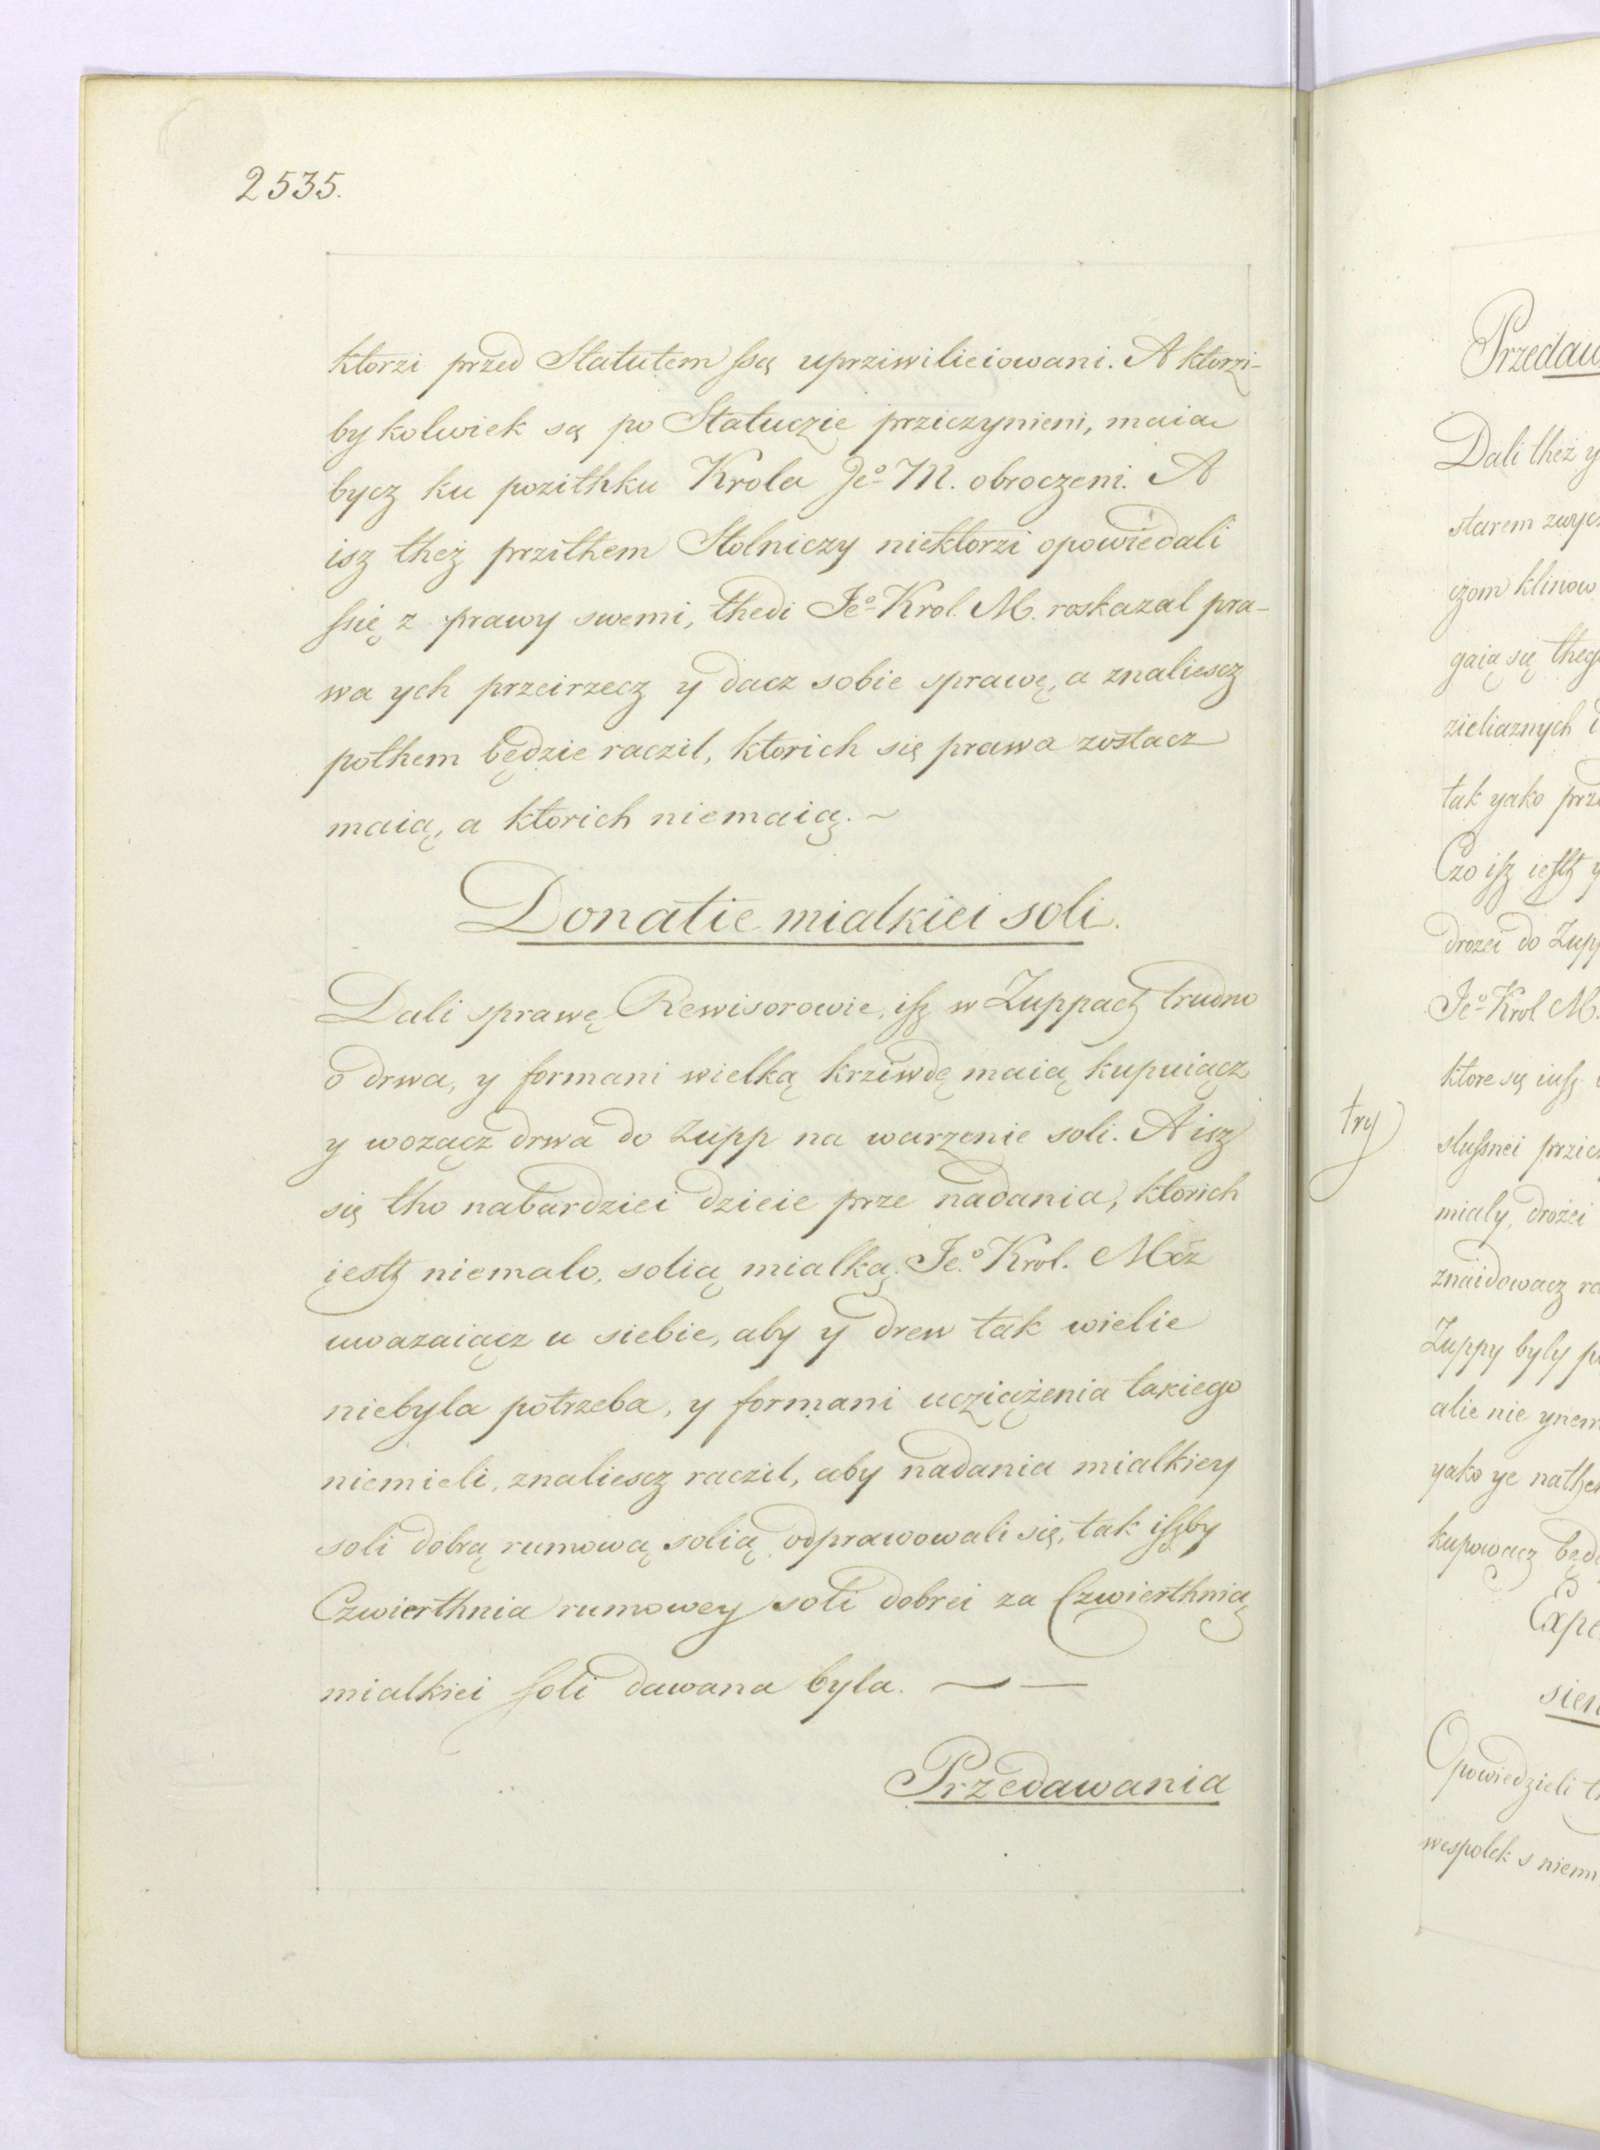 2535.
ktorzi przed Statutem ssą uprziwilieiowani. A ktorzi-
bykolwiek są po Statuczie prziczynieni, maia
bycz ku pozithku Krola Jeo M. obroczeni. A
isz theż przithem Stolniczy niektorzi opowiedali
ssię z prawy swemi, thedi Jeo Krol. M. roskazal pra-
wa ych przeirzecz y dacz sobie sprawę, a znaliescz
pothem będzie raczil, ktorich się prawa zostacz
maią, a ktorich niemaią. ~
Donatie mialkiei soli.
Dali sprawę Rewisorowie, isz w Zuppach trudno
o drwa, y formani wielką krziwdę maią kupuiącz
y wozącz drwa do Zupp na warzenie soli. A isz
się tho nabardziei dzieie prze nadania, ktorich
iesth niemalo, solią mialką. Jeo Krol. Mcz
uwazaiącz u siebie, aby y drew tak wielie
niebyla potrzeba, y formani ucziążenia takiego
niemieli, znaliescz raczil, aby nadania mialkiey
soli dobrą rumową solią odprawowali się, tak iszby
Czwierthnia rumowey soli dobrei za Czwierthnią
mialkiei soli dawana byla. — —
Przedawania
Dali theż y
starem
czom klinow
gaią się
tak yako
Czo isz iesth y
drozei do
Jeo Krol M.
ktore są iusz
try
slusznei
mialy, drożei
znaidowacz
Zuppy byly
alie nie
yako ye
kupowacz
Opowiedzieli
wespolek s niemi